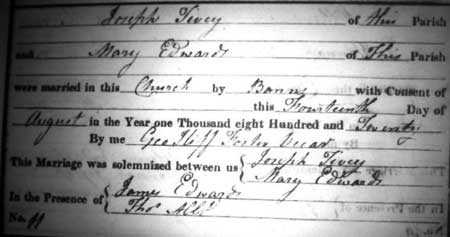 Joseph Tivey of this Parish
and Mary Edwards of This Parish
were married in this Church by Banns with Consent of
this Fourteenth Day of
August in the Year one Thousand eight Hundred and Twenty
By me Geo Iliff Foster Vicar
This Marriage was solemnized between us { Joseph Tivey
Mary Edwards
In the Presence of { James Edwards
Thos
No.